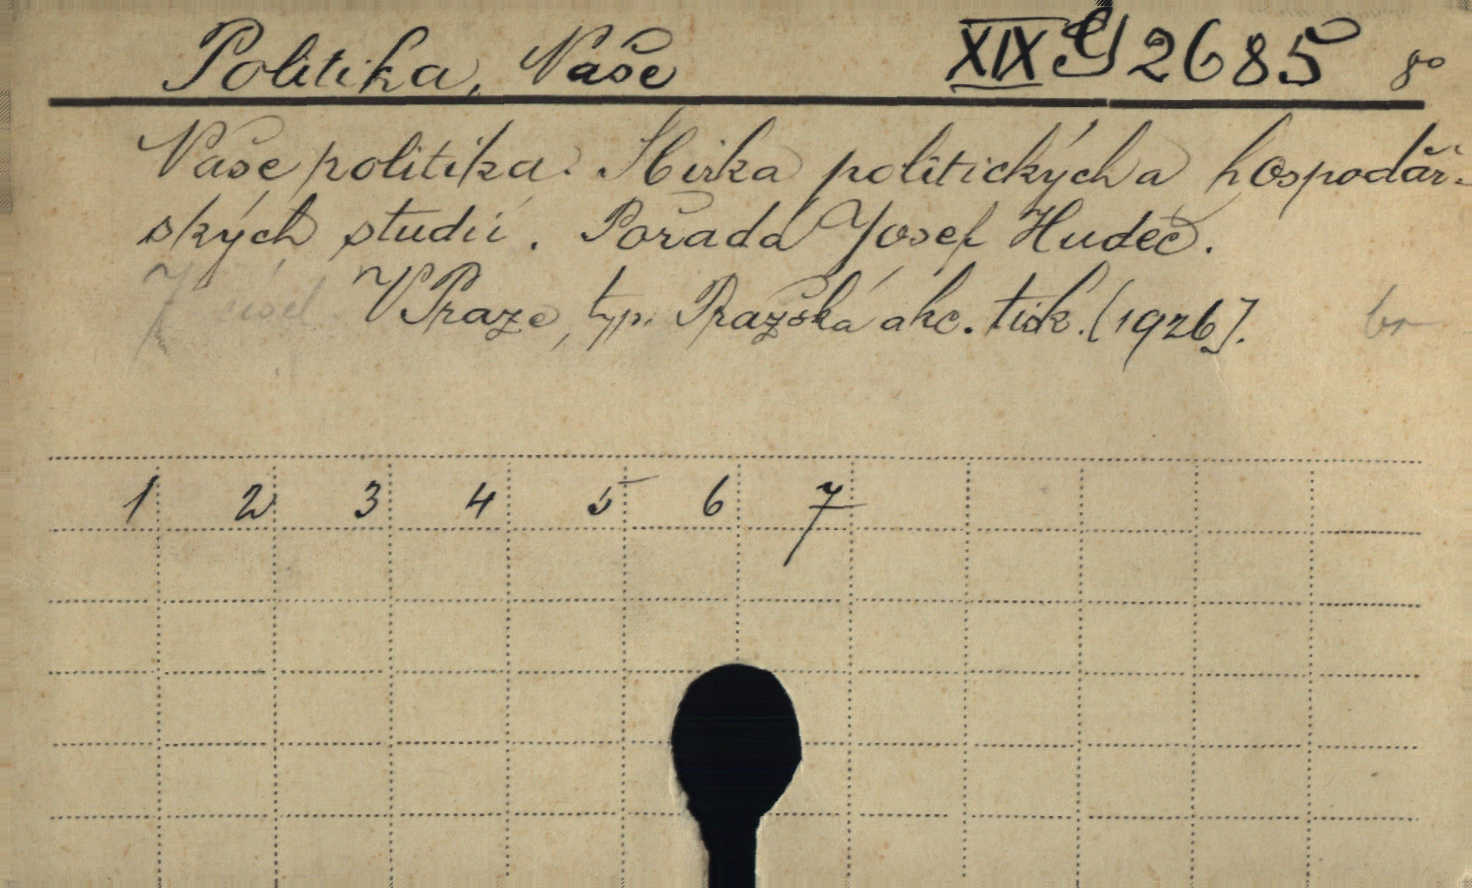 Politika, Naše XIX G 2685 8°
Naše politika. Sbírka politických a hospodář-
ských studií. Pořádá Josef Hudec.
7 čísel V Praze, typ. Pražská akc. tisk. [1926]. br
1 2 3 4 5 6 7